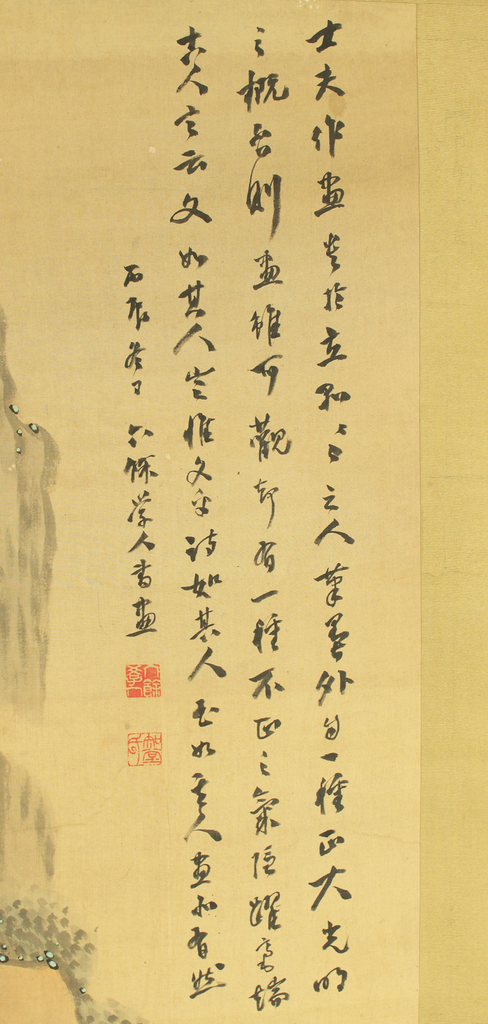 士夫作畫貴於立品々々之人筆墨外自一種正大光明
之概否則畫雖可觀却有一種不正之氣隱躍毫端
古人言云文如其人豈惟文乎詩如其人書如其人畫亦有然
丙辰冬日 六餘学人書畫